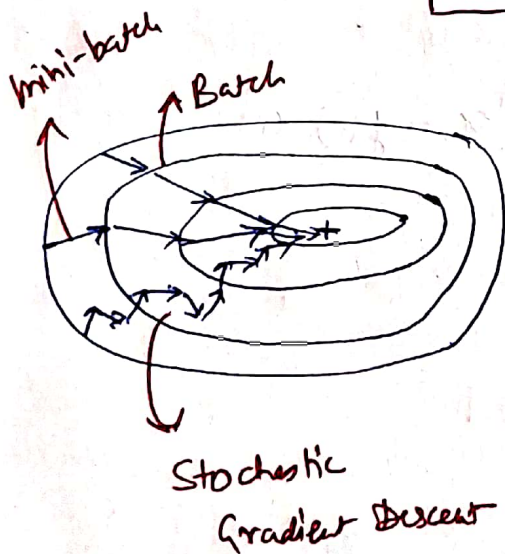 mini-batch
Batch
+
Stochestic
Gradient Descent